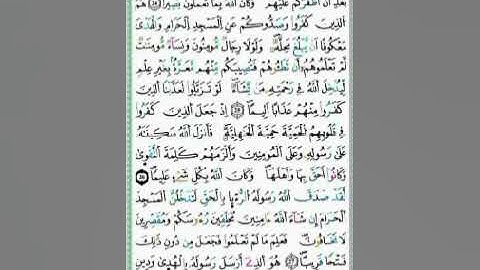 بَعْدِ أَنَ اَظْفَرَكُمْ عَلَيْهِمْ وَكَانَ اَللَّهُ بِمَا تَعْمَلُونَ بَصِيراً هُمُ
اُلذِينَ كَفَرُوا وَصَدُّوكُمْ عَنِ اِلْمَسْجِدِ اِلْحَرَامِ وَالْهَدْيَ
مَعْكُوفاً اَنْ يَّبْلُغَ مَحِلَّهُ وَلَوْلَا رِجَالٌ مُّومِنُونَ وَنِسَاءٌ مُّومِنَتٌ
لَّمْ تَعْلَمُوهُمُ أَن تَطَئُوهُمْ فَتُصِيبَكُم مِّنْهُم مَّعَرَّةٌ بِغَيْرِ عِلْمٍ
لِّيُدْخِلَ اَللَّهُ فِي رَحْمَتِهِ مَنْ يَّشَاءُ لَوْ تَزَيَّلُوا لَعَذَّبْنَا اَلذِينَ
كَفَرُوا مِنْهُمْ عَذَاباً اَلِيماً إِذْ جَعَلَ اَلذِينَ كَفَرُوا
فِي قُلُوبِهِمُ اُلْحَمِيَّةَ حَمِيَّةَ اَلْجَهِلِيَّةِ فَأَنزَلَ اَللَّهُ سَكِينَتَهُ
عَلَى رَسُولِهِ وَعَلَى اَلْمُومِنِينَ وَأَلْزَمَهُمْ كَلِمَةَ اَلتَّقْوَى
وَكَانُوا أَحَقَّ بِهَا وَأَهْلَهَا وَكَانَ اَللَّهُ بِكُلِّ شَيْءٍ عَلِيماً
لَّقَدْ صَدَقَ اَللَّهُ رَسُولَهُ اُلرُّءْيَا بِالْحَقِّ لَتَدْخُلُنَّ اَلْمَسْجِدَ
اَلْحَرَامَ إِن شَاءَ اَللَّهُ ءَامِنِينَ مُحَلِّقِينَ رُءُوسَكُمْ وَمُقَصِّرِينَ
لَا تَخَافُونَ فَعَلِمَ مَا لَمْ تَعْلَمُوا فَجَعَلَ مِن دُونِ ذَلِكَ
فَتْحاً قَرِيباً هُوَ اَلذِي أَرْسَلَ رَسُولَهُ بِالْهُدَى وَدِينِ